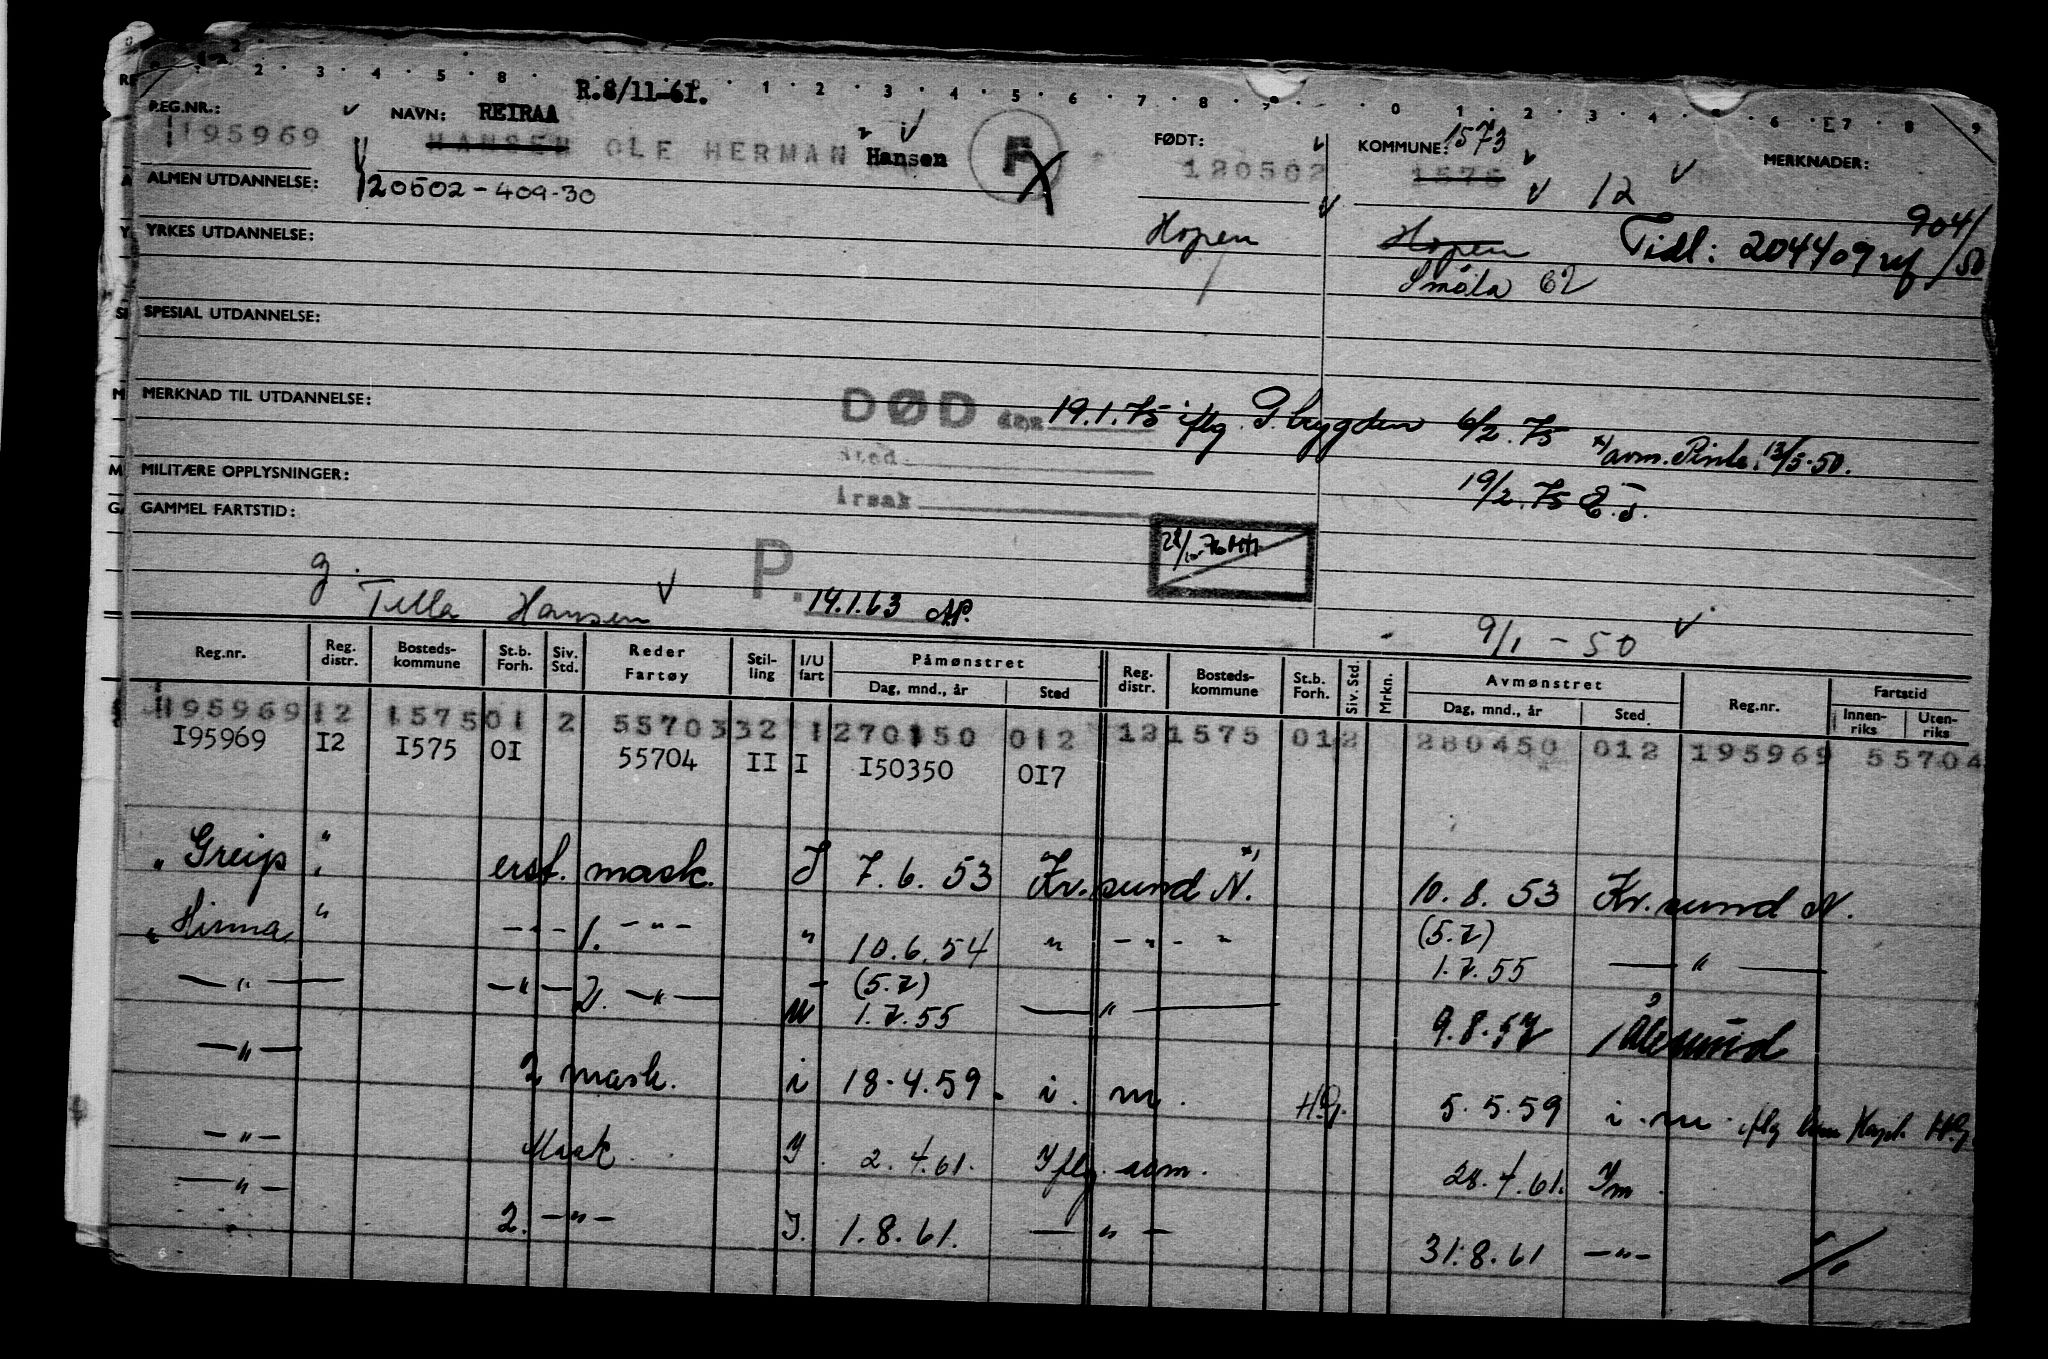 R.8/11-61.
REG.NR.: NAVN: REIRAA FØDT: KOMMUNE: 1573 MERKNADER:
195969 HANSEN OLE HERMAN Hansen F 120502 1576 12
ALMEN UTDANNELSE: 120502-409-30
904/50
YRKES UTDANNELSE: Hopen Hopen Tidl: 204409
Smøla 62
SPESIAL UTDANNELSE:
MERKNAD TIL UTDANNELSE: DØD den 19.1.75 iflg. 6/2.75 x) avm. 13/5-50.
Sted
MILITÆRE OPPLYSNINGER: 19/2.75 E.J.
Årsak
GAMMEL FARTSTID:
P.
g. Tella Hansen 14.1.63 AP. 9/1-50
Reg.nr. Reg. distr. Bosteds-kommune St.b. Forh. Siv. Std. Reder Fartøy Stil-ling I/U fart Påmønstret Dag, mnd., år Sted Reg. distr. Bosteds-kommune St.b. Forh. Siv. Std. Mrkn. Avmønstret Dag, mnd., år Sted Reg.nr. Fartstid Innen-riks Uten-riks
195969 12 1575 01 2 55703 32 1 270150 012 12 1575 01 2 280450 012 195969 55704
I95969 I2 I575 OI 55704 II I I50350 OI7
"Greip" erst. mask. I 7.6.53 Kr.sund N. x) 10.8.53 Kr.sund N.
"Hinna" -"- 1. -"- " 10.6.54 " -"- " (5.7) 1.7.55 -"-
-"- -"- 2. -"- U (5.7) 1.7.55 -"- 9.8.57 Ålesund
-"- 2 mask. i 18.4.59. i. m. H.J. 5.5.59 i. m. iflg
-"- Mask. I 2.4.61. Iflg. søm. 28.4.61. Im.
-"- 2. -"- I. 1.8.61. -"- 31.8.61 -"-